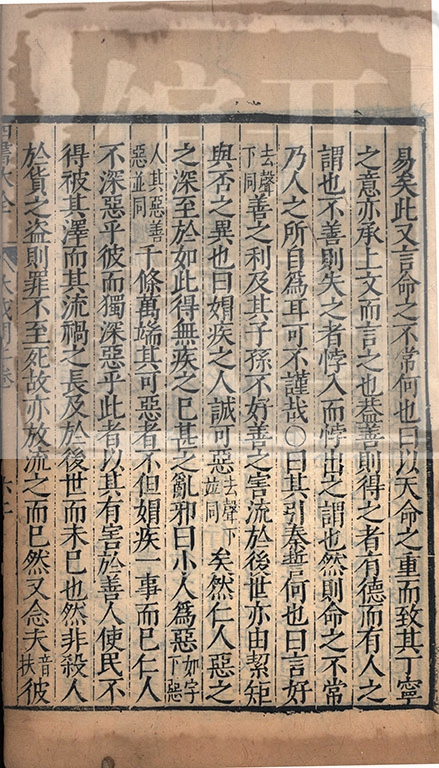 易矣此又言命之不常何也曰以天命之重而致其丁寧
之意亦承上文而言之也蓋善則得之者有德而有人之
謂也不善則失之者悖入而悖出之謂也然則命之不常
乃人之所自為耳可不謹哉○曰其引秦誓何也曰言好
去聲下同善之利及其子孫不好善之害流於後世亦由絜矩
與否之異也曰媢疾之人誠可惡去聲下並同矣然仁人惡之
之深至於如此得無疾之已甚之亂邪曰小人為惡如字下惡
人其惡善惡並同千條萬端其可惡者不但媢疾一事而已仁人
不深惡乎彼而獨深惡乎此者以其有害於善人使民不
得被其澤而其流禍之長及於後世而未已也然非殺人
於貨之盜則罪不至死故亦放流之而已然又念夫音扶彼
四書大全 大學或問 卷